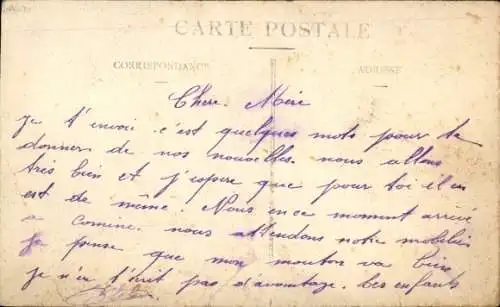 CARTE POSTALE
CORRESPONDANCE
ADRESSE
Chere Mère
Je t'envoi c'est quelques mots pour te
donner de nos nouvelles. nous allons
très bien et j'espere que pour toi il en
est de même Nous en ce moment arrivé
a Comine. nous attendons notre mobilier
Je pense que mon mouton va bien
je n'en t'écrit pas d'avantage. Les enfants